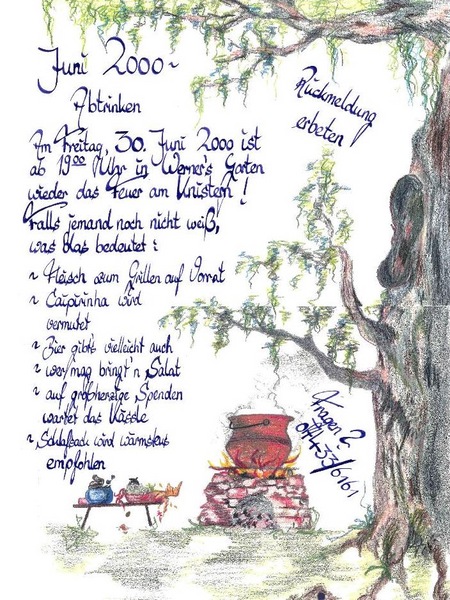 Juni 2000~
Abtrinken
Am Freitag, 30. Juni 2000 ist
ab 19⁰⁰ Uhr in Werner's Garten
wieder das Feuer am Knistern!
Falls jemand noch nicht weiß,
was das bedeutet:
~ Fleisch zum Grillen auf Vorrat
~ Caipirinha wird
vermutet
~ Bier gibt's vielleicht auch
~ wer mag bringt'n Salat
~ auf großherzige Spenden
wartet das Kässle
~ Schlafsack wird wärmstens
empfohlen
Rückmeldung
erbeten!
Fragen?